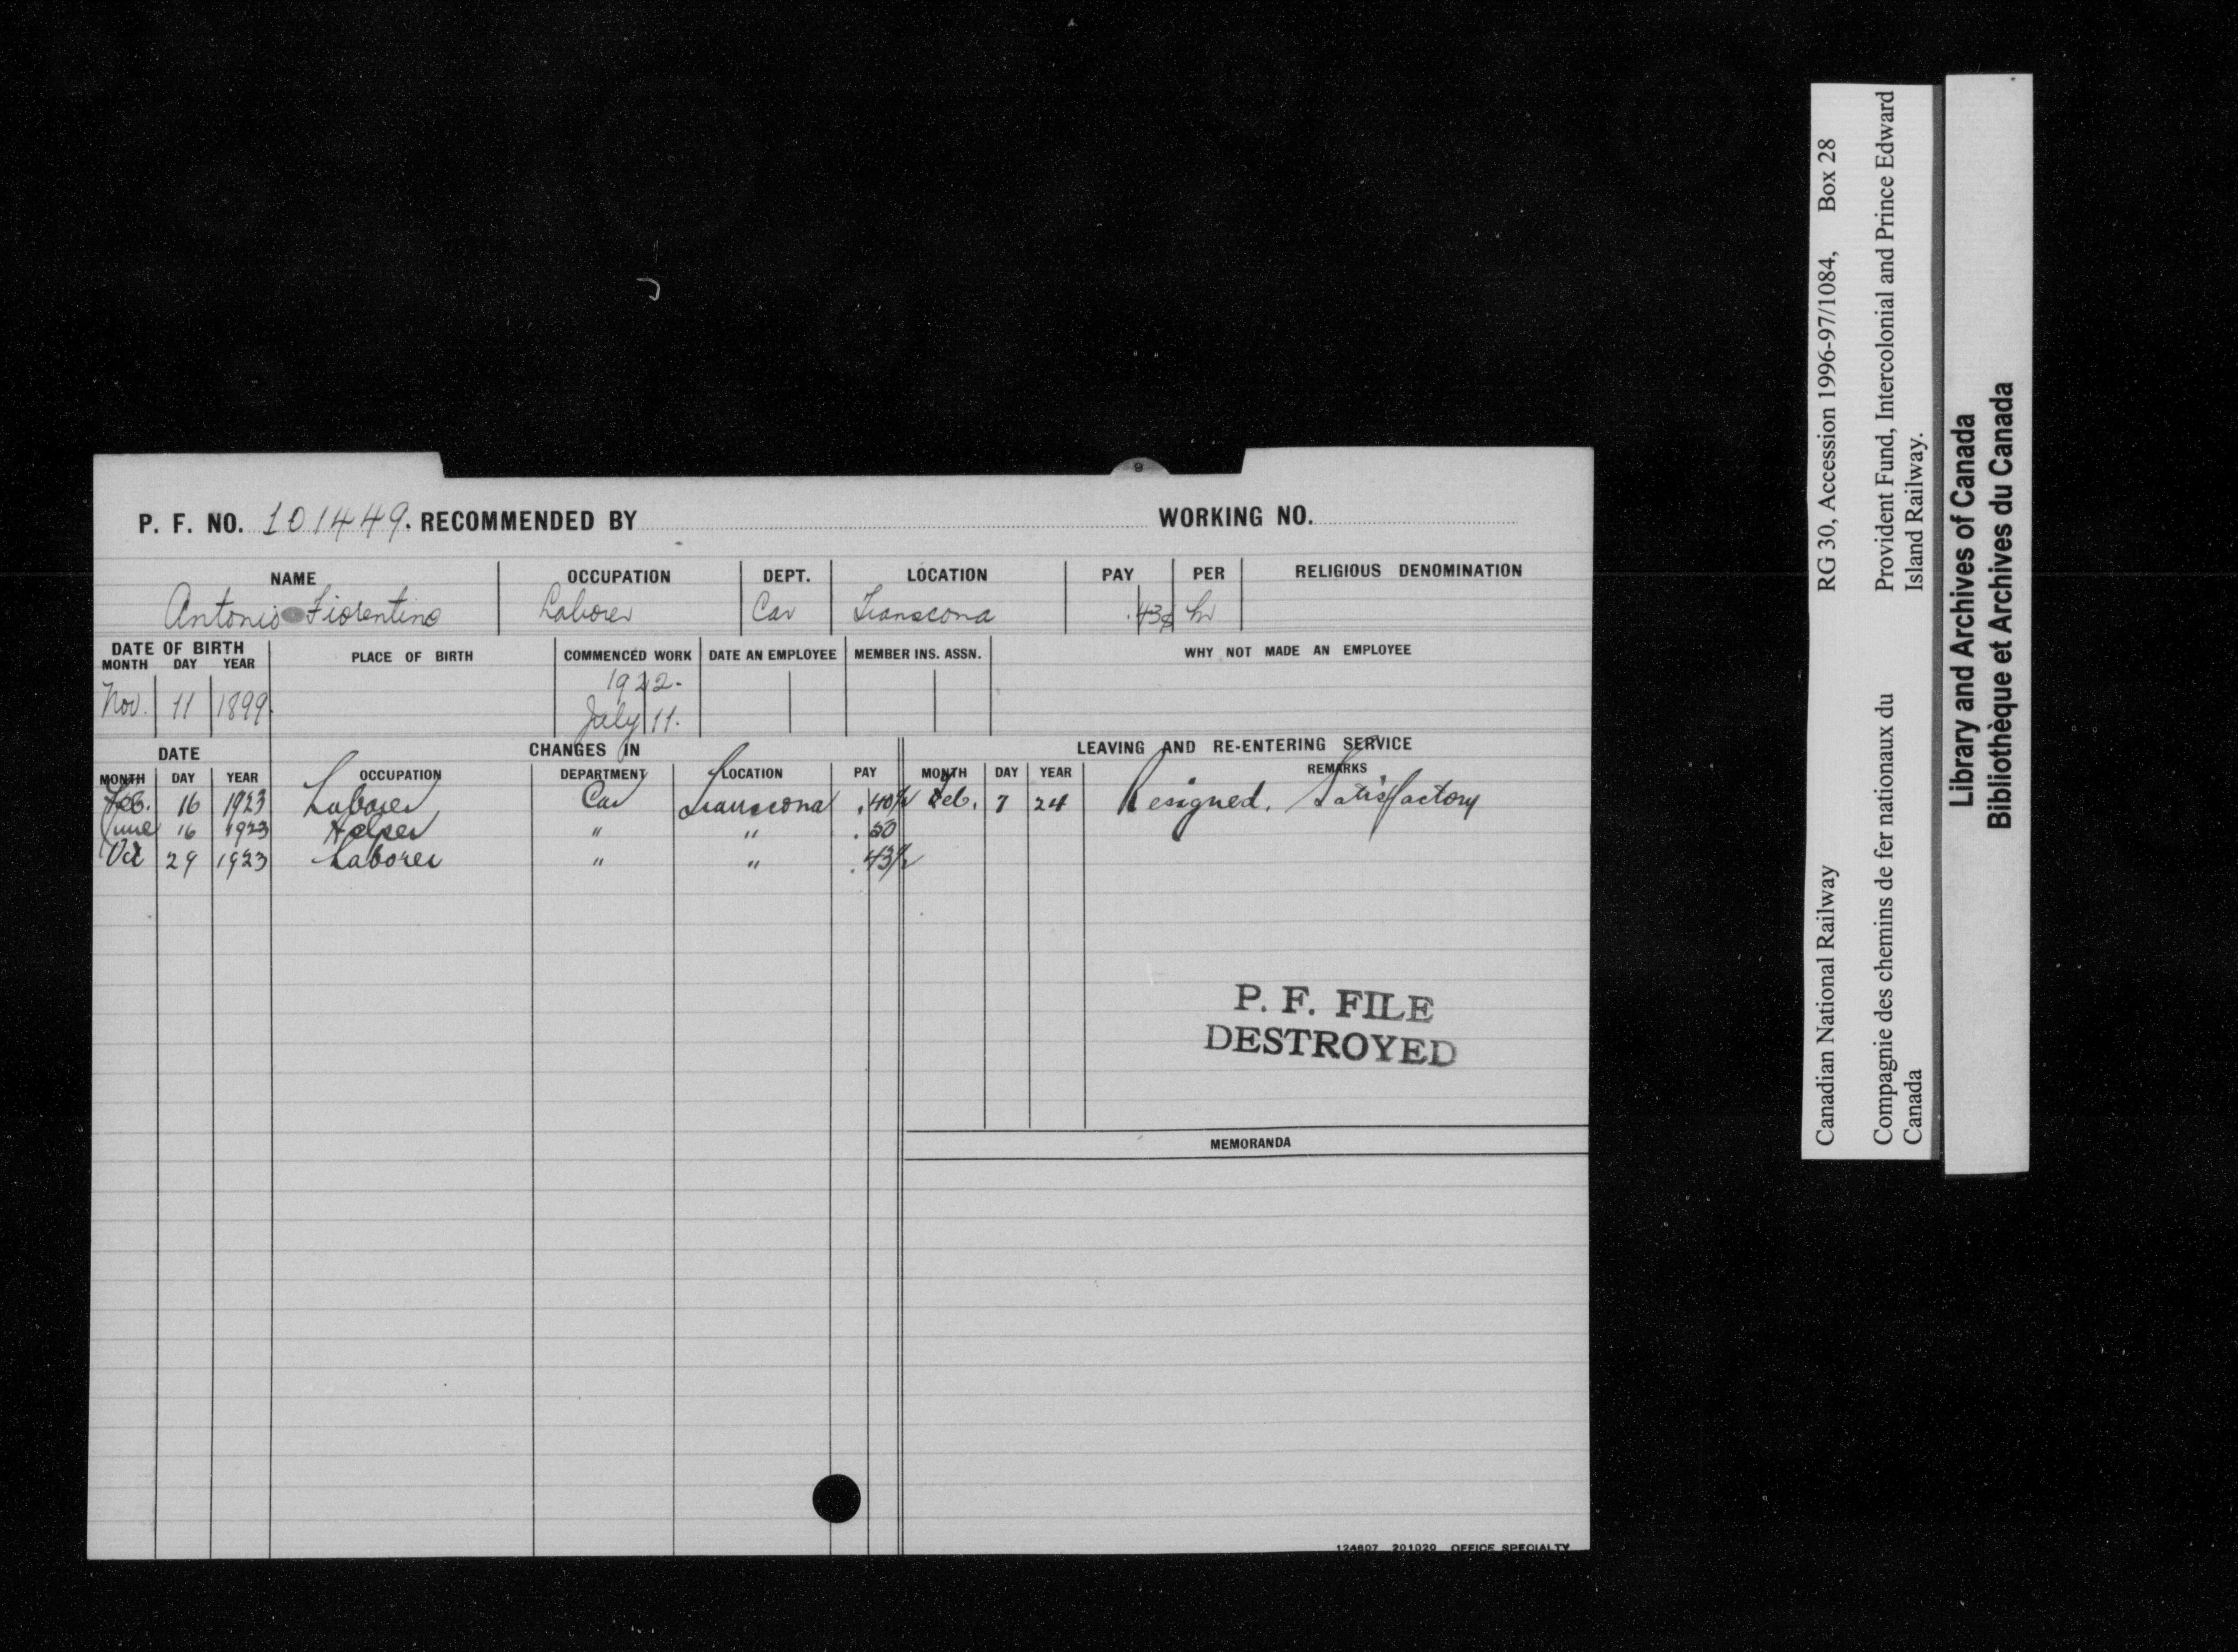 P. F. NO. 101449. RECOMMENDED BY WORKING NO.
NAME OCCUPATION DEPT. LOCATION PAY PER RELIGIOUS DENOMINATION
Antonio Fiorentino Laborer Car Transcona .43¢ hr
DATE OF BIRTH PLACE OF BIRTH COMMENCED WORK DATE AN EMPLOYEE MEMBER INS. ASSN. WHY NOT MADE AN EMPLOYEE
MONTH DAY YEAR
1922.
Nov. 11 1899. July 11.
DATE CHANGES IN LEAVING AND RE-ENTERING SERVICE
MONTH DAY YEAR OCCUPATION DEPARTMENT LOCATION PAY MONTH DAY YEAR REMARKS
Feb. 16 1923 Laborer Car Transcona .40½ Feb. 7 24 Resigned. Satisfactory
June 16 1923 Helper " " .50
Oct 29 1923 Laborer " " .43½
P. F. FILE
DESTROYED
MEMORANDA
124807 201020 OFFICE SPECIALTY
9
Canadian National Railway RG 30, Accession 1996-97/1084, Box 28
Compagnie des chemins de fer nationaux du Canada
Provident Fund, Intercolonial and Prince Edward
Island Railway.
Library and Archives of Canada
Bibliothèque et Archives du Canada